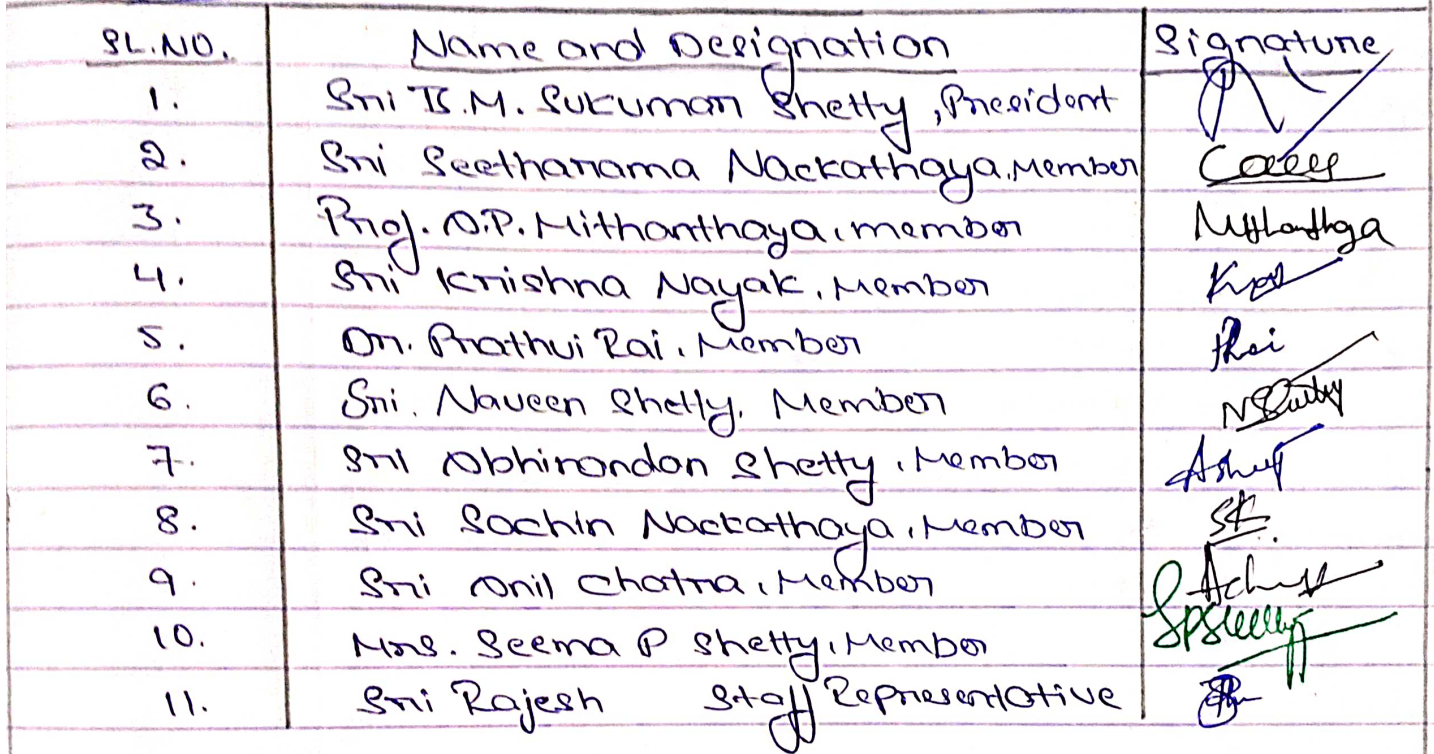 SL.NO. Name and Designation Signature
1. Sri B.M. Sukumar Shetty, President
2. Sri Seetharama Nackathaya, Member
3. Prof. A.P. Mithanthaya, member Mithanthya
4. Sri Krishna Nayak, Member
5. Dr. Prathvi Rai, Member PRai
6. Sri. Naveen Shetty, Member NShetty
7. Sri Abhinandan Shetty, Member
8. Sri Sachin Nackathaya, Member
9. Sri Anil Chatra, Member
10. Mrs. Seema P Shetty, Member SPShetty
11. Sri Rajesh Staff Representative